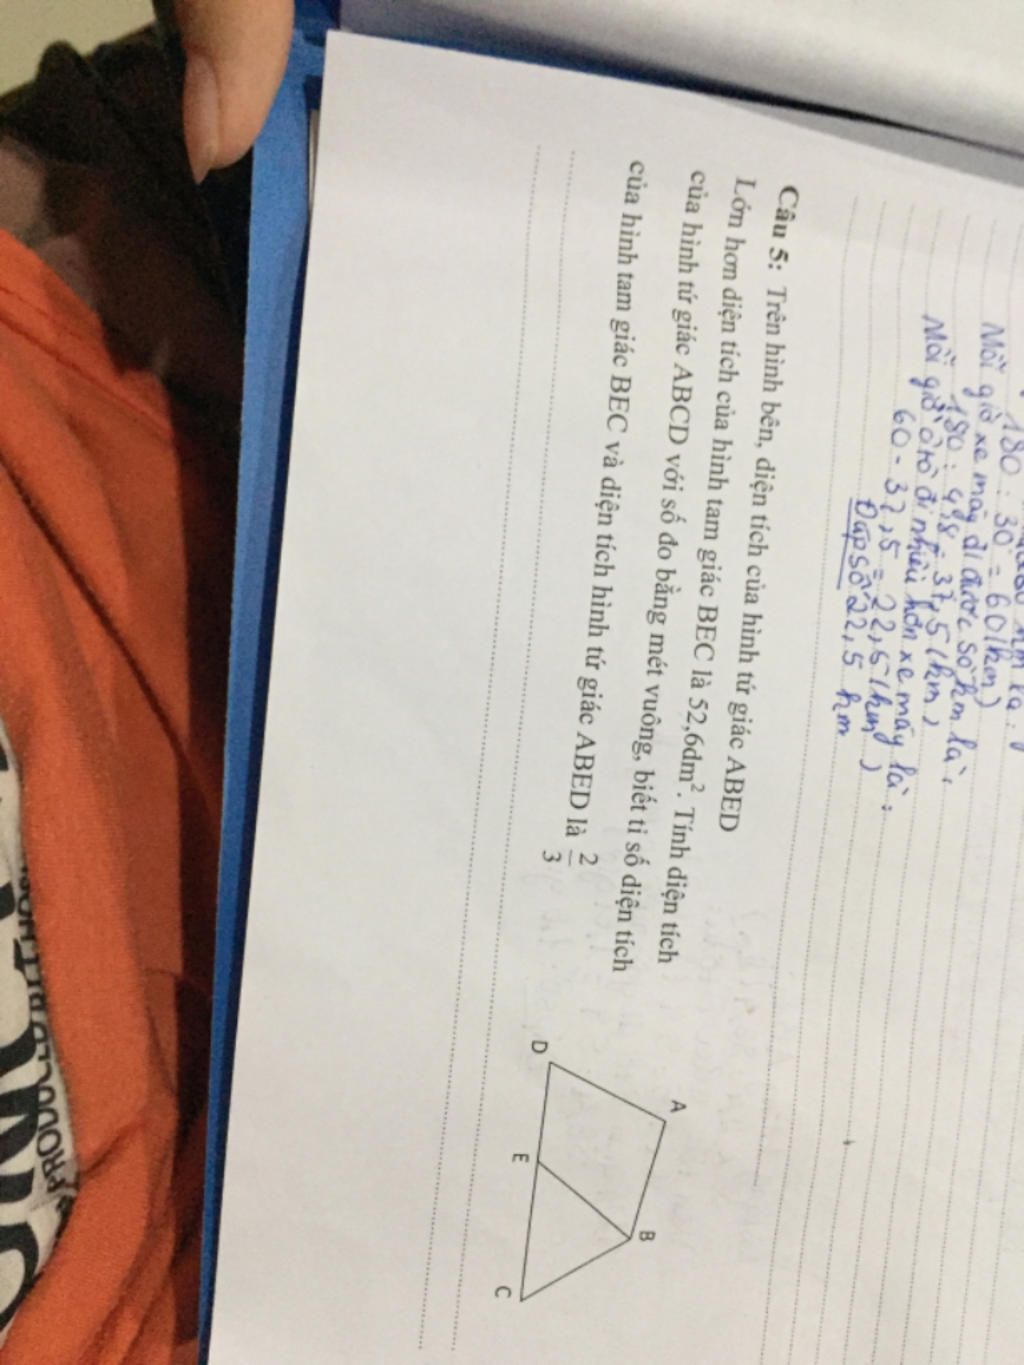 180 : 30 = 60 (km)
Mỗi giờ xe máy đi được số km là:
180 : 4,8 = 37,5 (km)
Mỗi giờ ô tô đi nhiều hơn xe máy là:
60 - 37,5 = 22,5 (km)
Đáp số 22,5 km
Câu 5: Trên hình bên, diện tích của hình tứ giác ABED
Lớn hơn diện tích của hình tam giác BEC là 52,6dm². Tính diện tích
của hình tứ giác ABCD với số đo bằng mét vuông, biết tỉ số diện tích
của hình tam giác BEC và diện tích hình tứ giác ABED là 2/3
A
B
D
E
C